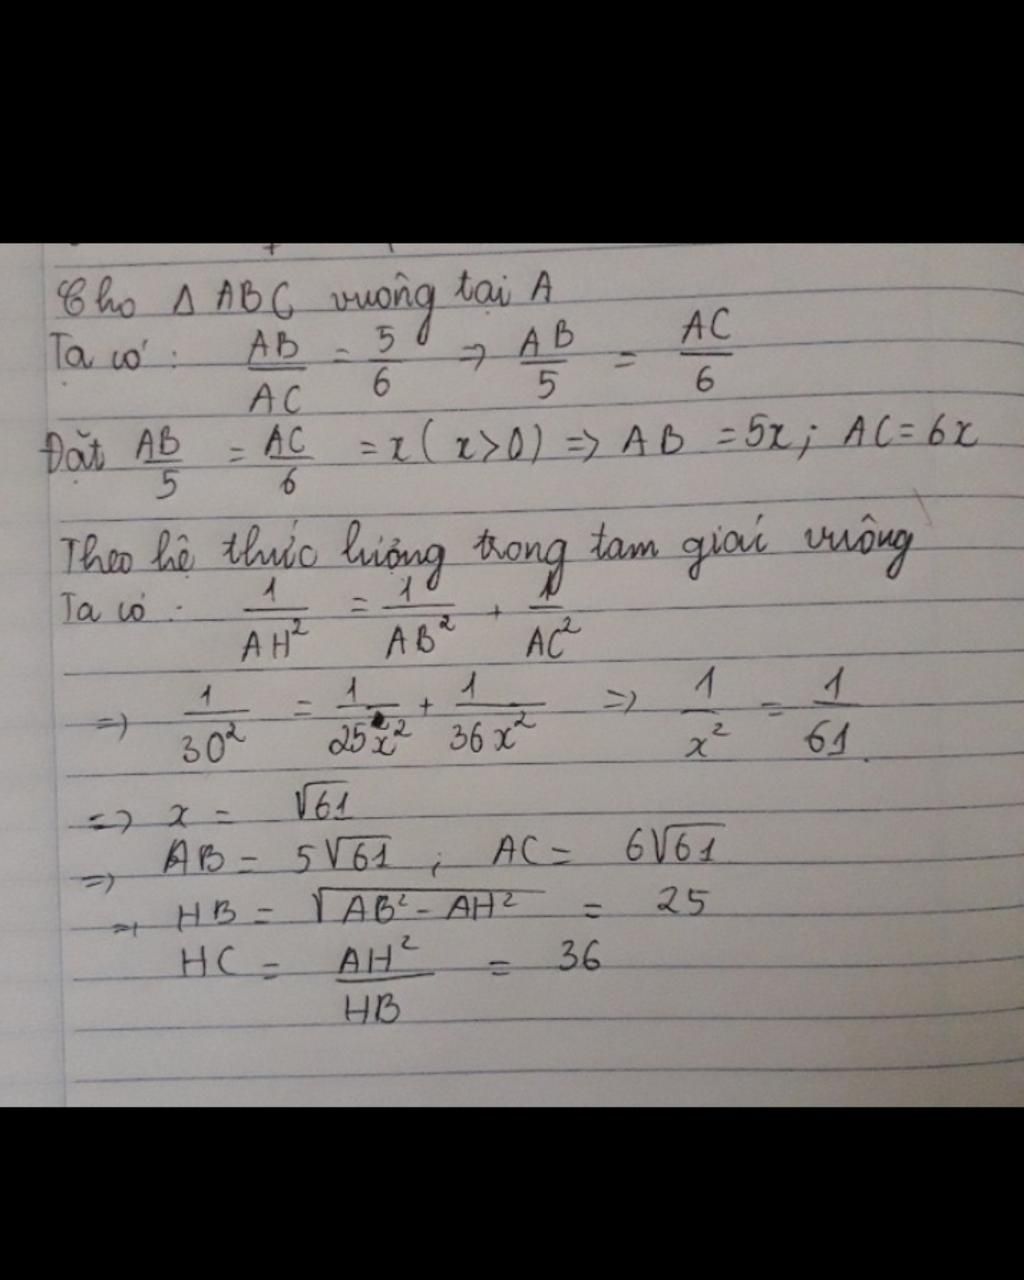 Cho Δ ABC vuông tại A
Ta có: AB/AC = 5/6 => AB/5 = AC/6
Đặt AB/5 = AC/6 = x (x>0) => AB = 5x; AC = 6x
Theo hệ thức lượng trong tam giái vuông
Ta có: 1/AH² = 1/AB² + 1/AC²
=> 1/30² = 1/25x² + 1/36x² => 1/x² = 1/61
=> x = √61
=> AB = 5√61 ; AC = 6√61
=> HB = √(AB² - AH²) = 25
HC = AH²/HB = 36